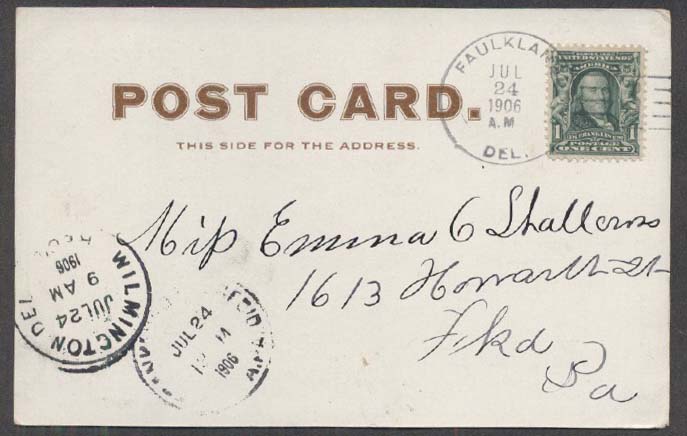 POST CARD.
THIS SIDE FOR THE ADDRESS.
FAULKLAND
JUL
24
1906
A.M
DEL.
UNITED STATES OF
AMERICA
1 1
FRANKLIN
POSTAGE
ONE CENT
Miss Emma C Shallcross
1613 Howarth St
Fkd
Pa
WILMINGTON DEL
JUL 24
9 AM
1906
JUL 24
1906